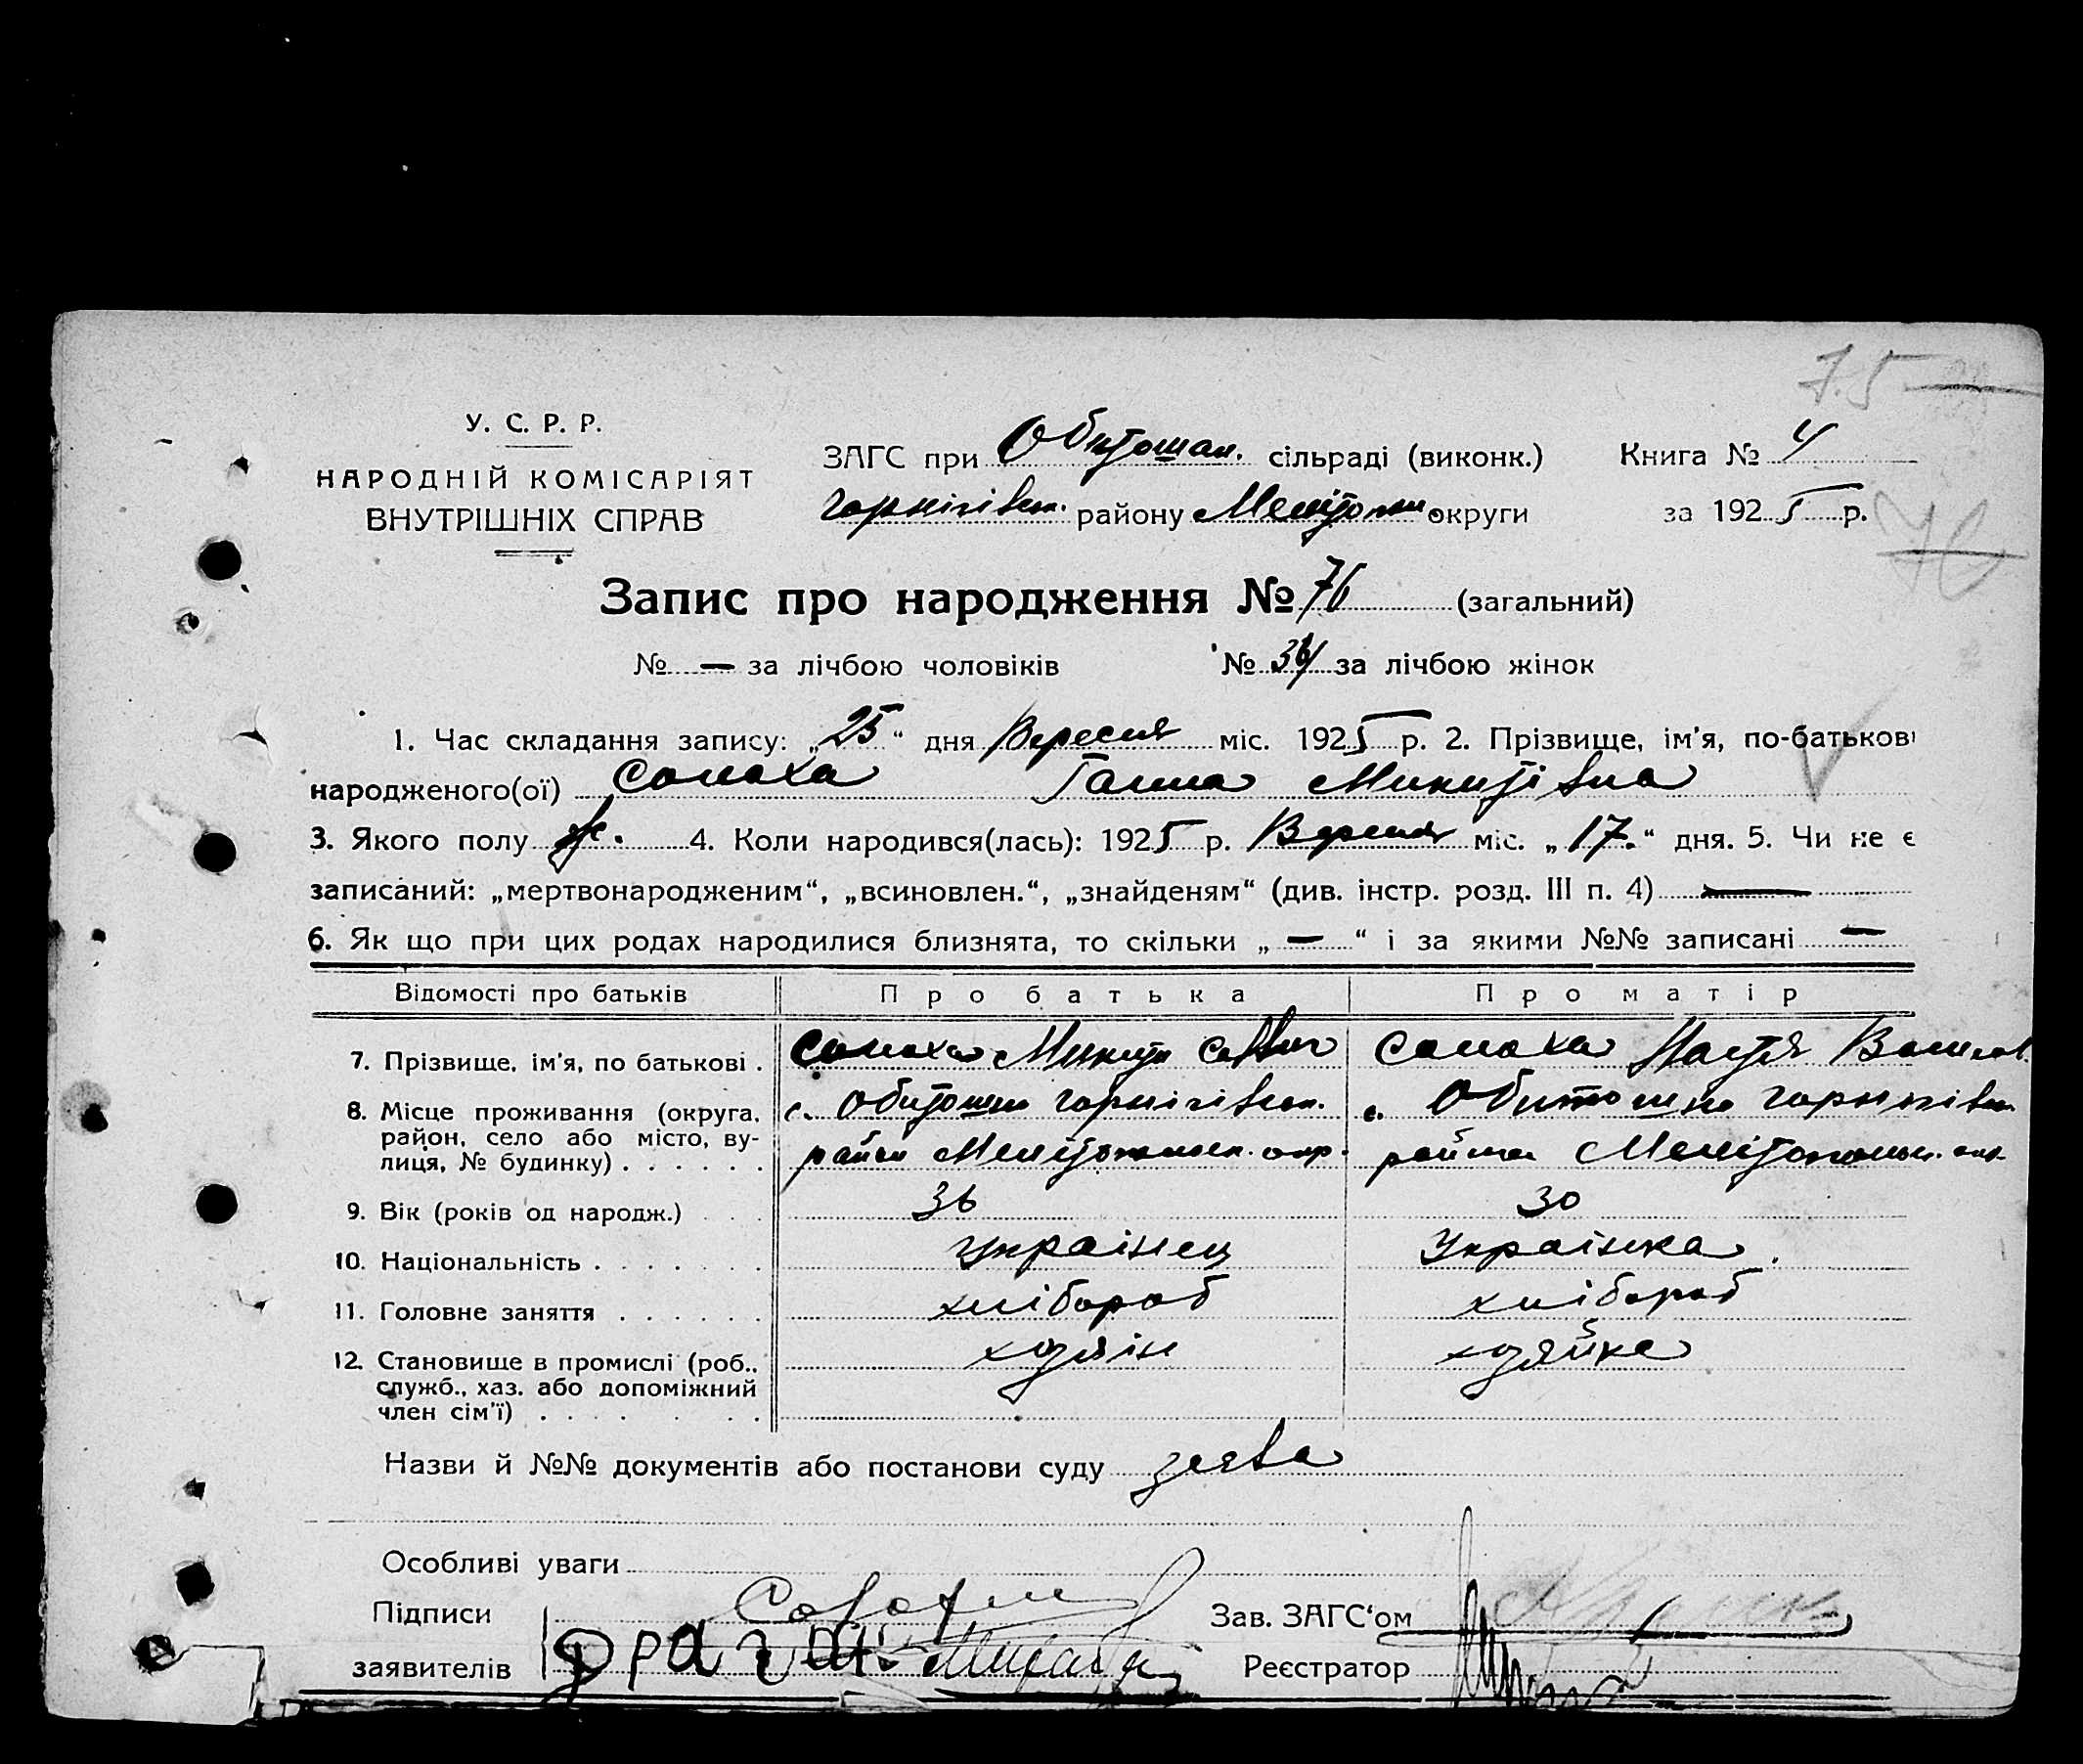 75
У. С. Р. Р.
НАРОДНІЙ КОМІСАРІЯТ
ВНУТРІШНІХ СПРАВ
ЗАГС при Обиточан. сільраді (виконк.) Книга № 4
Чернігівськ. району Мелітопол. округи за 1925 р.
76
Запис про народження № 76 (загальний)
№ — за лічбою чоловіків № 34 за лічбою жінок
1. Час складання запису: „25“ дня Вересня міс. 1925 р. 2. Прізвище, ім'я, по-батькові
народженого(ої) Солоха Ганна Микитівна
3. Якого полу ж. 4. Коли народився(лась): 1925 р. Вересня міс. „17.“ дня. 5. Чи не є
записаний: „мертвонародженим“, „всиновлен.“, „знайденям“ (див. інстр. розд. III п. 4) —
6. Як що при цих родах народилися близнята, то скільки „—“ і за якими №№ записані —
Відомості про батьків Про батька Про матір
7. Прізвище, ім'я, по батькові . Солоха Микита Савич Солоха Настя
8. Місце проживання (округа, район, село або місто, вулиця, № будинку) . . . . . .
с. Обиточне Чернігівськ. район Мелітопольськ. окр.
с. Обиточне Чернігівськ. району Мелітопольськ. окр.
9. Вік (років од народж.) . . . 36 30
10. Національність . . . . . . . Українец Українка.
11. Головне заняття . . . . . . хлібороб хлібороб
12. Становище в промислі (роб., служб., хаз. або допоміжний член сім'ї) . . . . . . хазяїн хазяйка
Назви й №№ документів або постанови суду заява
Особливі уваги
Підписи Зав. ЗАГС'ом
заявителів Реєстратор